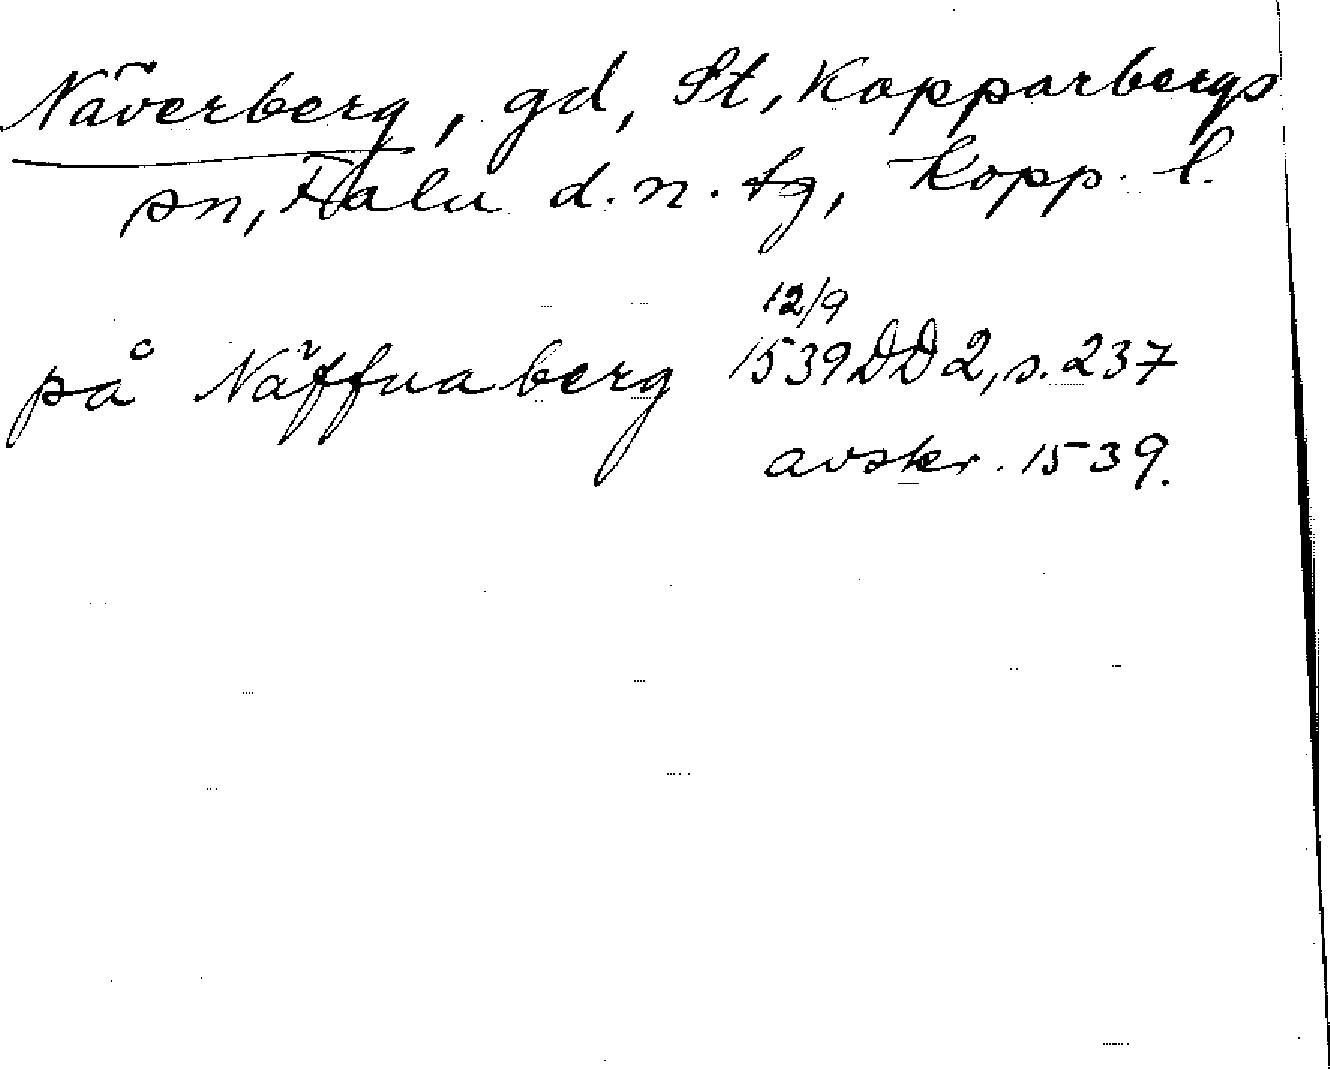 Näverberg, gd, St. Kopparbergs
sn, Falu d. n. tg, Kopp. l.
12/9
på Näffua berg 1539 DD 2, s. 237
avskr. 1539.